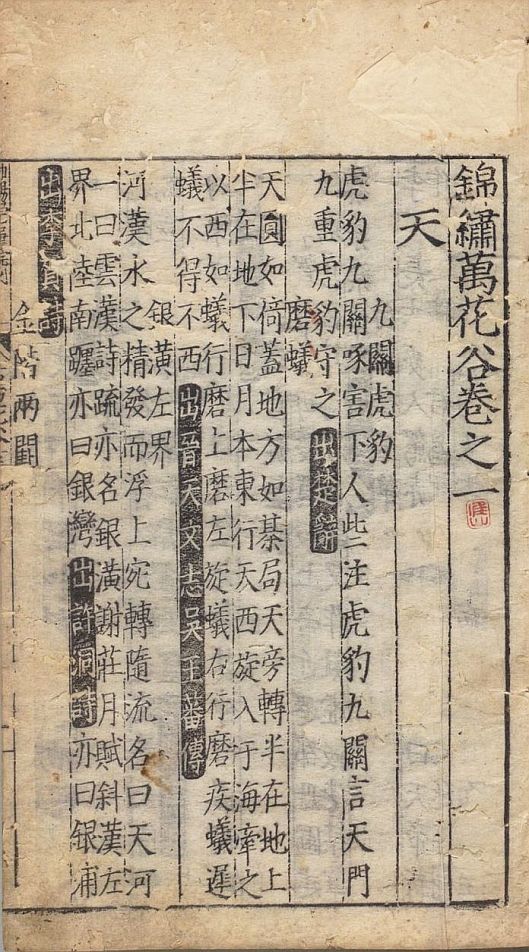 錦繡萬花谷卷之一
天
九關虎豹
虎豹九關啄害下人此二注虎豹九關言天門
九重虎豹守之 出楚辭
磨蟻
天圓如倚蓋地方如棊局天旁轉半在地上
半在地下日月本東行天西旋入于海牽之
以西如蟻行磨上磨左旋蟻右行磨疾蟻遲
蟻不得不西 出晉天文志吳王蕃傳
銀潢左界
河漢水之精發而浮上宛轉隨流名曰天河
一曰雲漢詩疏亦名銀潢謝莊月賦斜漢左
界北陸南躔亦曰銀灣 出許洞詩 亦曰銀浦
出李賀詩
金階兩闈